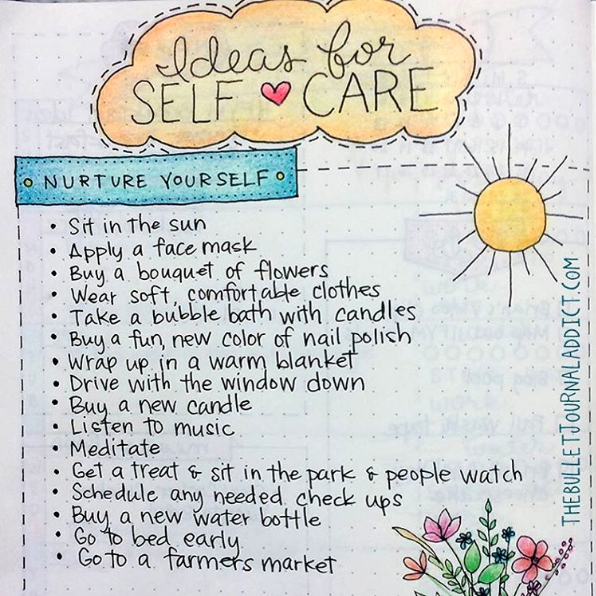 Ideas for
SELF CARE
NURTURE YOURSELF
• Sit in the sun
• Apply a face mask
• Buy a bouquet of flowers
• Wear soft, comfortable clothes
• Take a bubble bath with candles
• Buy a fun, new color of nail polish
• Wrap up in a warm blanket
• Drive with the window down
• Buy a new candle
• Listen to music
• Meditate
• Get a treat & sit in the park & people watch
• Schedule any needed check ups
• Buy a new water bottle
• Go to bed early
• Go to a farmers market
THEBULLETJOURNALADDICT.COM